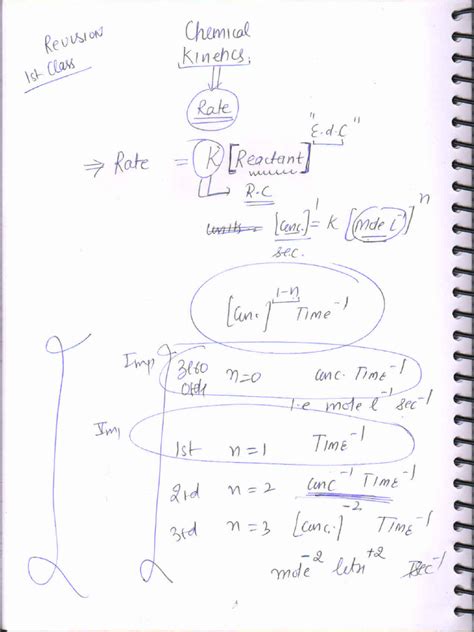 Revision
1st Class
Chemical
Kinetics
Rate
"E.d.C"
⇒ Rate = K [Reactant]
R.C
units [Conc.]¹ = K [mole L⁻¹]ⁿ
sec.
[Conc.]¹⁻ⁿ Time⁻¹
Imp
Zero n=0 conc. Time⁻¹
Orde
i.e mole l⁻¹ sec⁻¹
Imp
1st n=1 Time⁻¹
2rd n=2 conc⁻¹ Time⁻¹
3rd n=3 [Conc.]⁻² Time⁻¹
mole⁻² litr⁺² sec⁻¹